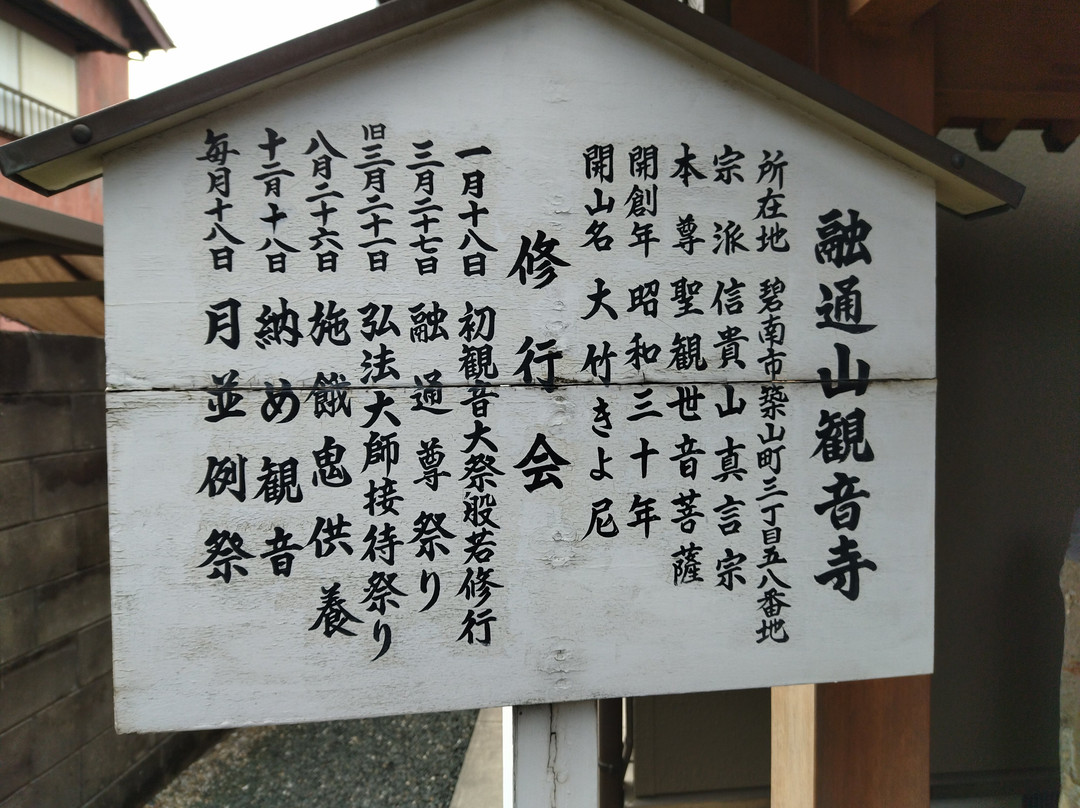 融通山観音寺
所在地 碧南市築山町三丁目五八番地
宗派 信貴山真言宗
本尊 聖観世音菩薩
開創年 昭和三十年
開山名 大竹きよ尼
修行会
一月十八日 初観音大祭般若修行
三月二十七日 融通尊祭り
旧三月二十一日 弘法大師接待祭り
八月二十六日 施餓鬼供養
十二月十八日 納め観音
毎月十八日 月並例祭